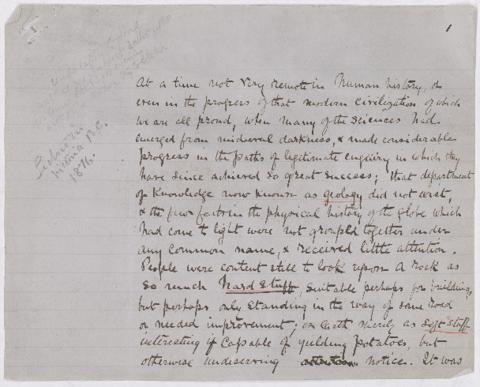 1
At a time not very remote in human history, &
even in the progress of that modern civilization of which
we are all proud, when many of the sciences had
emerged from mediæval darkness, & made considerable
progress in the paths of legitimate enquiry in which they
have since achieved so great success; that department
of Knowledge now known as geology did not exist,
& the few facts in the physical history of the globe which
had come to light were not grouped together under
any common name, & received little attention.
People were content still to look upon a rock as
so much hard stuff, suitable perhaps for building,
but perhaps only standing in the way of some road
or needed improvement; on earth merely as soft stuff
interesting if capable of yielding potatoes, but
otherwise undeserving notice. It was
Lecture in
Victoria B.C.
1876.